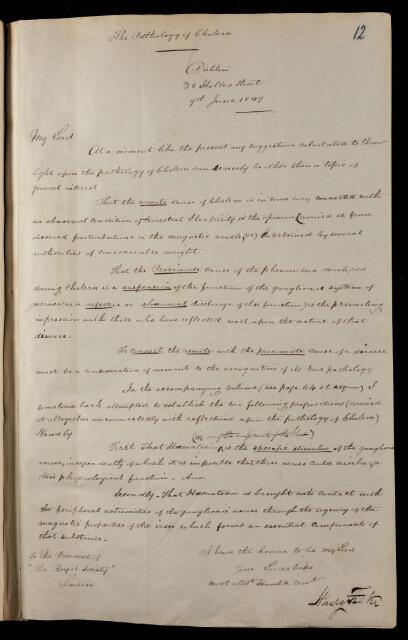 12
The Pathology of Cholera
Dublin
28 Holles Street
9th June 1847
My Lord
At a moment like the present any suggestion calculated to throw
light upon the pathology of Cholera can scarcely be other than a topic of
general interest
That the remote cause of Cholera is in some way connected with
an abnormal condition of terrestrial Electricity is the opinion (arrived at from
observed perturbations in the magnetic needle &c) entertained by several
authorities of considerable weight.
That the Proximate cause of the phenomena developed
during Cholera is a suspension of the function of the ganglionic system of
nerves (or a defective or abnormal discharge of that function) is the prevailing
impression with those who have reflected most upon the nature of that
disease.
To connect the remote with the proximate cause of a disease
must be a consideration of moment to the recognition of its true pathology
In the accompanying volume (see page 64 et sequn) I
sometime back attempted to establish the two following propositions (arrived
at altogether unconnectedly with reflections upon the pathology of Cholera)
Namely
First That Hæmatosin is the specific stimulus of the ganglionic
nerves, independently of which it is impossible that those nerves could discharge
their physiological function. And
Secondly. That Hæmatosin is brought into contact with
the peripheral extremities of the ganglionic nerves through the agency of the
magnetic properties of the iron which forms an essential component of
that substance.
I have the honor to be my Lord
your Lordship's
most obdt Humble Servt
To the President of
"The Royal Society"
London